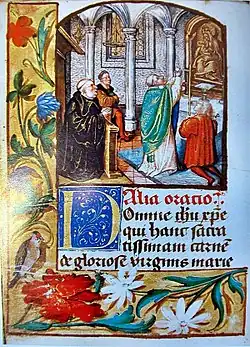 Alia oratio
Domine ihu xpe
qui hanc sacra
tissimam carnē
de gloriose virginis marie